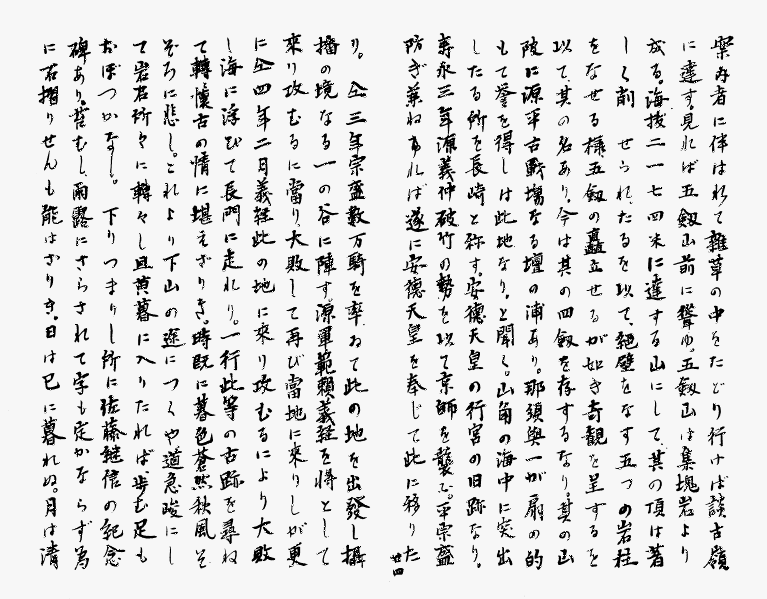 案内者に伴はれて雑草の中をたどり行けば談古嶺
に達す。見れば五劔山前に聳ゆ。五劔山は集塊岩より
成る。海抜二一七四米に達する山にして、其の頂は著
しく削せられたるを以て、絶壁をなす五つの岩柱
をなせる様五劔の矗立せるが如き奇観を呈するを
以て、其の名あり、今は其の四劔を存するなり。其の山
陂に源平古戰場なる壇の浦あり。那須與一が扇の的
もて誉を得しは此地なり、と聞く。山角の海中に突出
したる所を長崎と称す。安德天皇の行宮の旧跡なり。
寿永三年源義仲破竹の勢を以て京師を襲ふ。平宗盛
防ぎ兼ねければ遂に安德天皇を奉じて此に移りた
廿四
り。仝三年宗盛数万騎を率ゐて此の地を出發し攝
播の境なる一の谷に陣す。源軍範賴義経を將として
來り攻むるに當り、大敗して再び當地に來りしが更
に仝四年二月義経此の地に來り攻むるにより大敗
し海に浮びて長門に走れり。一行此等の古跡を尋ね
て轉懷古の情に堪えざりき。時既に暮色蒼然秋風そ
ぞろに悲し。これより下山の途につくや道急峻にし
て岩石所々に轉々し且黄暮に入りたれば歩む足も
おぼつかなし。下りつまりし所に佐藤継信の紀念
碑あり。哲むし、雨露にさらされて字も定かならず為
に石摺りせんも能はざりき。日は已に暮れぬ。月は清